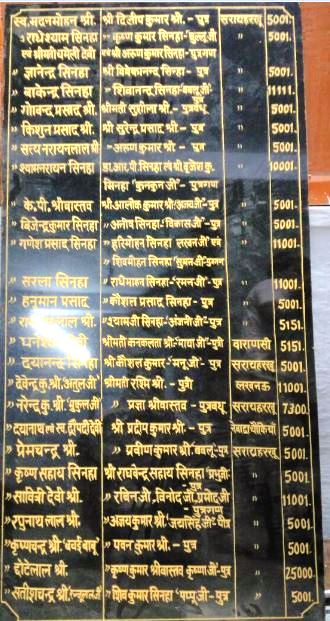 स्व. मदनमोहन श्री. श्री दिलीप कुमार श्री. - पुत्र सरायहरखू 5001.
" राधेश्याम सिनहा " कृष्ण कुमार सिनहा - पुत्र " 5001.
एवं श्रीमती चमेली देवी एवं श्री अरूण कुमार सिनहा - पुत्रगण
" ज्ञानेन्द्र सिनहा श्री विवेकानन्द सिनहा - पुत्र " 5001.
" बाकेन्द्र सिनहा " शिवानन्द सिनहा "बबलू जी" - पुत्र " 11111.
" गोविन्द प्रसाद श्री. श्रीमती सुशीला श्री. - पुत्रवधू " 5001.
" किशुन प्रसाद श्री. श्री सुरेन्द्र प्रसाद श्री. - पुत्र " 5001.
" सत्य नरायनलाल श्री. " अरूण कुमार श्री. - पुत्र " 5001.
" श्यामनरायन सिनहा डा. आर.पी. सिनहा एवं श्री बृजेश कु. " 10001.
सिनहा "कुनकुन जी" - पुत्रगण
" के.पी. श्रीवास्तव श्री आलोक कुमार श्री. - पुत्र " 5001.
" बिजेन्द्र कुमार सिनहा " अनीस सिनहा - "विकास जी" - पुत्र " 5001.
" गणेश प्रसाद सिनहा " हरिमोहन सिनहा लखन जी एवं " 11001.
" शिवमोहन सिनहा "सुमन जी"
" सरला सिनहा " राधेमोहन सिनहा - "रमन जी" - पुत्र " 11001.
" हनुमान प्रसाद " कौशल प्रसाद सिनहा - पुत्र " 5001.
लाल श्री. " श्यामजी सिनहा - "अंजनी जी" - पुत्र " 5151.
" देवी श्रीमती कनकलता श्री. - पुत्री वाराणसी 5151.
" दयानन्द सिनहा श्री कौशल कुमार "मनू जी" - पुत्र सरायहरखू 5001.
" देवेन्द्र कु. श्री. "अतुल जी" श्रीमती रश्मि श्री. - पुत्री लखनऊ 11001.
" नरेन्द्र कु. श्री. " प्रज्ञा श्रीवास्तव - पुत्रवधू सरायहरखू 7300.
" दयानाथ एवं स्व. द्रौपदी देवी श्री प्रदीप कुमार श्री. - पुत्र 5001.
" प्रेमचन्द्र श्री. " प्रवीण कुमार श्री. "बबलू" - पुत्र सरायहरखू 5001.
" कृष्ण सहाय सिनहा श्री राघवेन्द्र सहाय सिनहा - पुत्र " 5001.
" सावित्री देवी श्री. " रविन जी, विनोद जी, प्रमोद जी " 11001.
पुत्रगण
" रघुनाथ लाल श्री. " अजय कुमार श्री. "जयसिंह जी" - पौत्र " 5001.
" कृष्णचन्द्र श्री. "बबई बाबू" " पवन कुमार श्री. - पुत्र " 5001.
" छोटेलाल श्री. " कृष्ण कुमार श्रीवास्तव कृष्णा जी - पुत्र " 25000.
" सतीशचन्द्र श्री. " शिव कुमार सिनहा "पप्पू जी" - पुत्र " 5001.